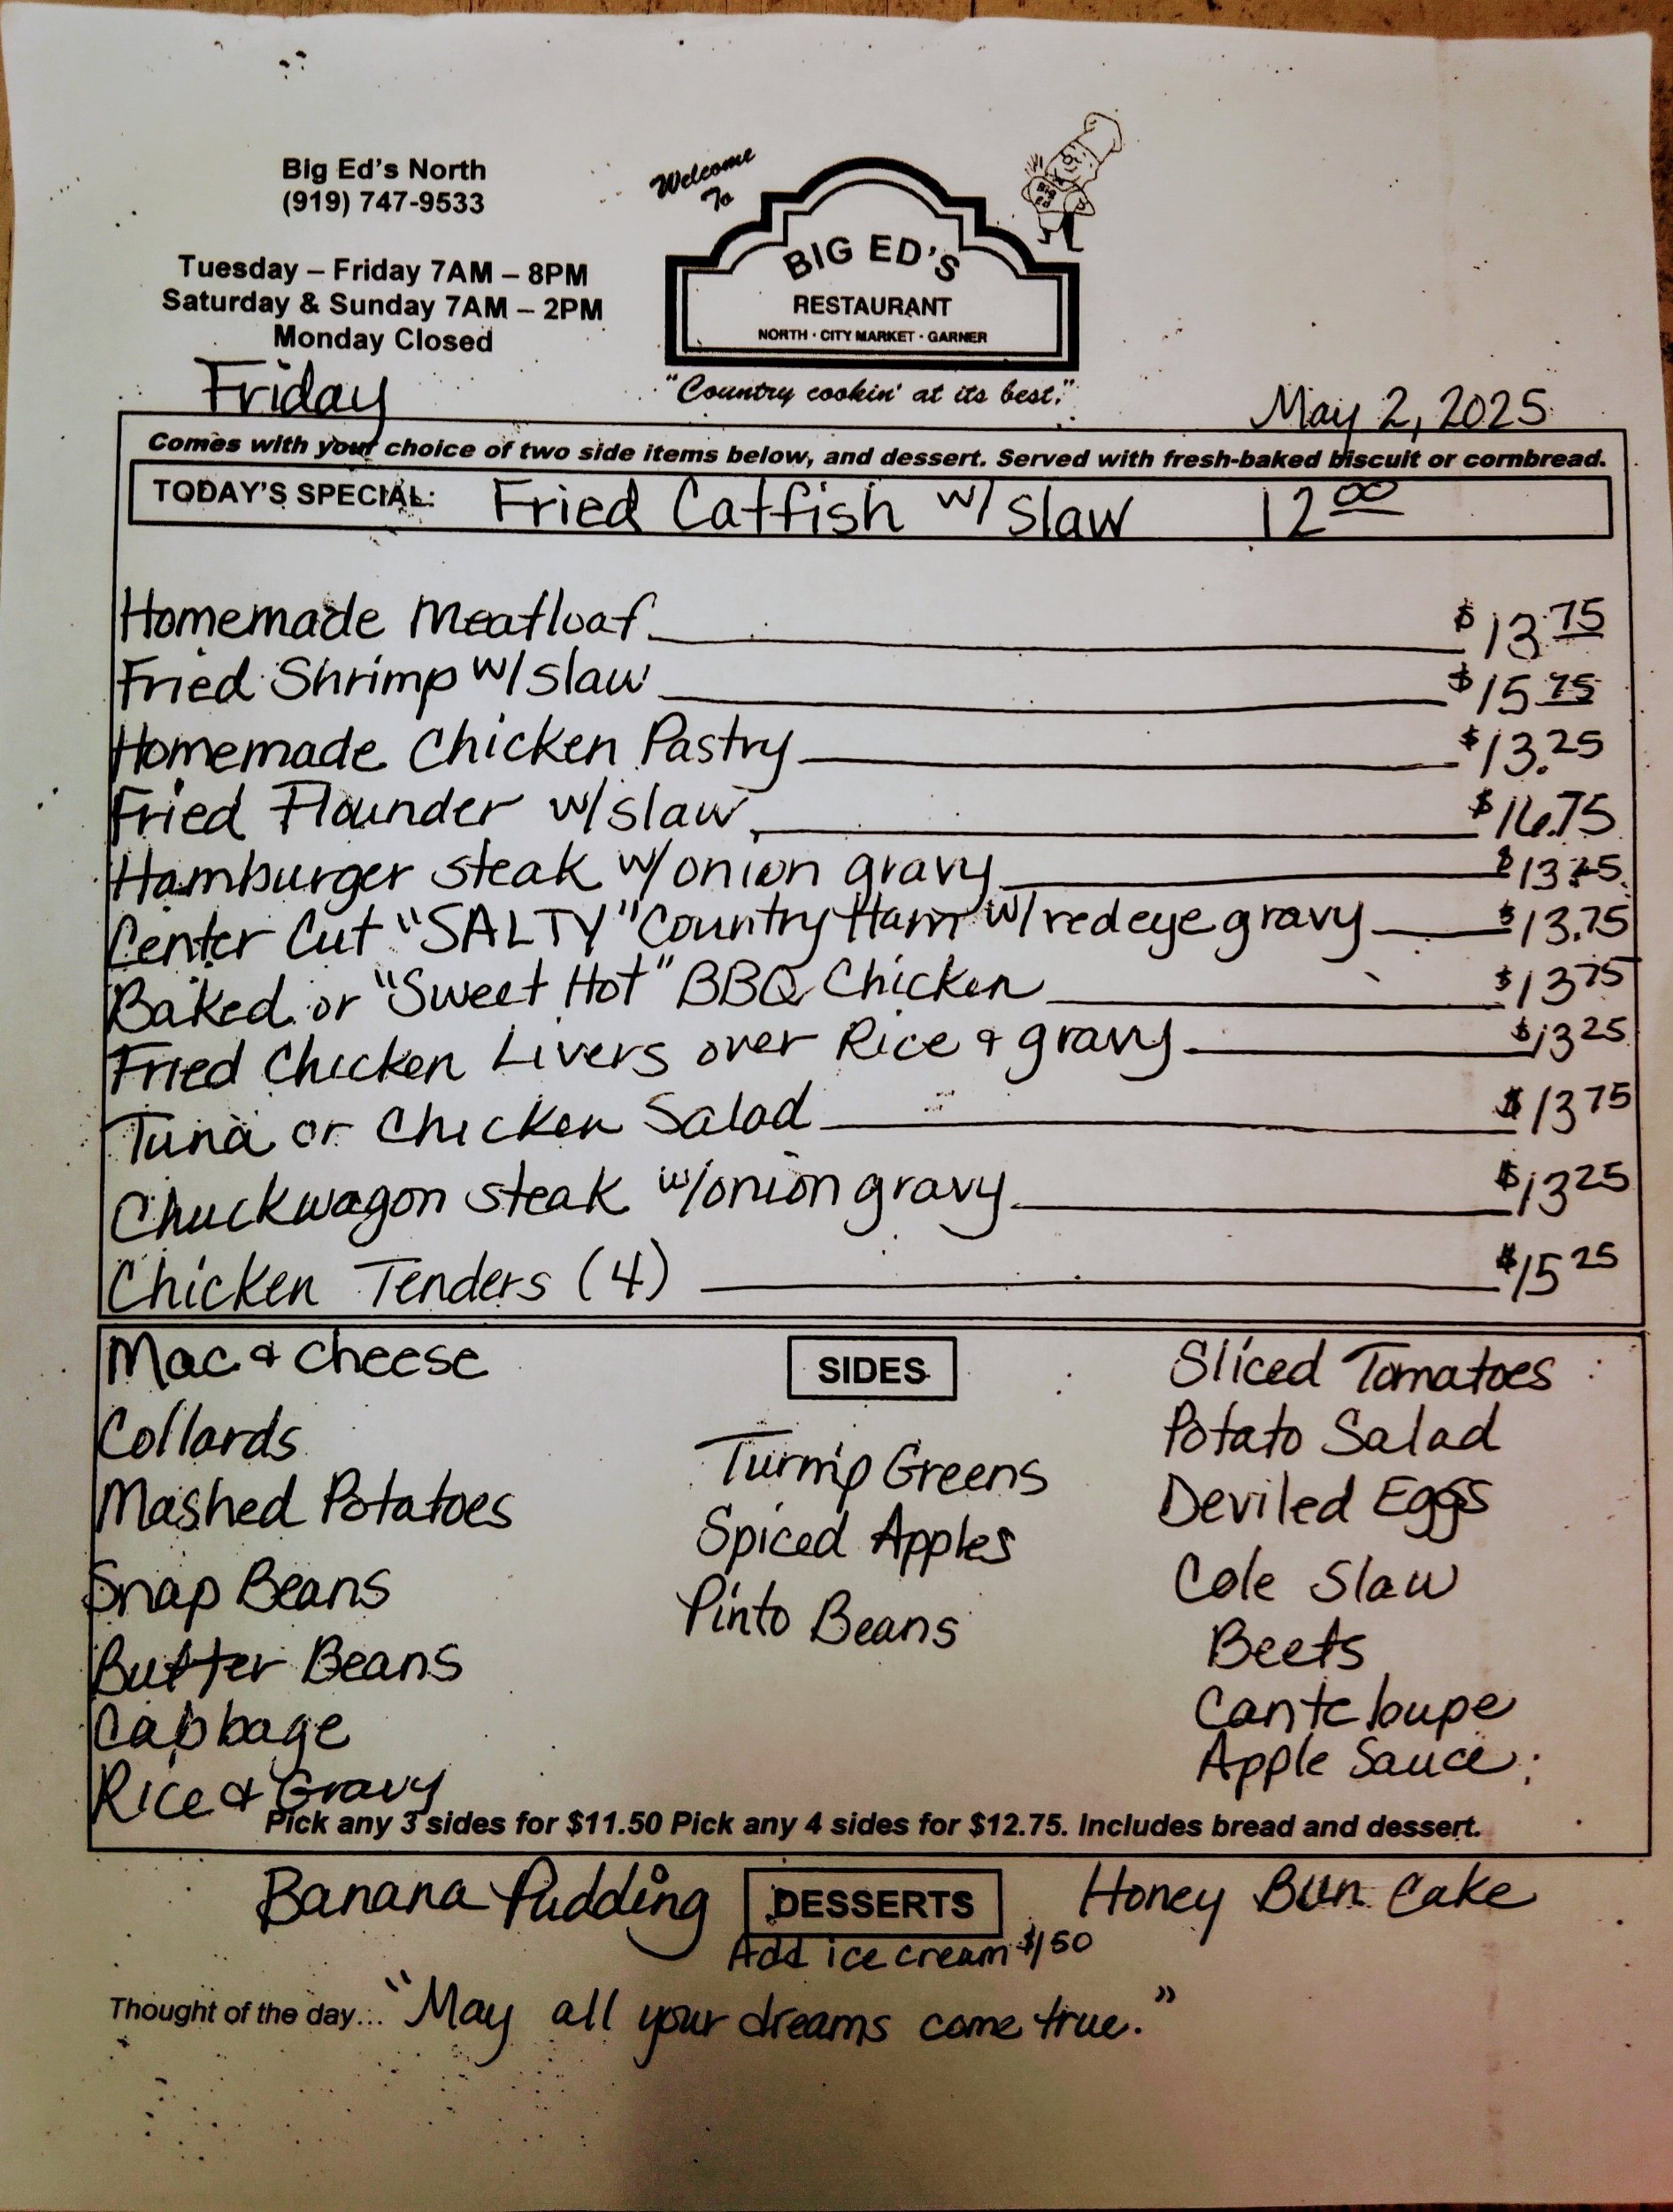 Big Ed's North
(919) 747-9533
Tuesday – Friday 7AM – 8PM
Saturday & Sunday 7AM – 2PM
Monday Closed
Welcome
To
BIG ED'S
RESTAURANT
NORTH · CITY MARKET · GARNER
"Country cookin' at its best."
Friday
May 2, 2025
Comes with your choice of two side items below, and dessert. Served with fresh-baked biscuit or cornbread.
TODAY'S SPECIAL: Fried Catfish w/ slaw 12 00
Homemade Meatloaf $13 75
Fried Shrimp w/ slaw $15 75
Homemade Chicken Pastry $13.25
Fried Flounder w/ slaw $16.75
Hamburger steak w/ onion gravy
Center Cut "SALTY" Country Ham w/ redeye gravy $13.75
Baked or "Sweet Hot" BBQ Chicken $13 75
Fried Chicken Livers over Rice & gravy $13 25
Tuna or Chicken Salad $13 75
Chuckwagon steak w/ onion gravy $13 25
Chicken Tenders (4) $15 25
SIDES
Mac & Cheese
Collards
Mashed Potatoes
Snap Beans
Butter Beans
Cabbage
Rice & Gravy
Turnip Greens
Spiced Apples
Pinto Beans
Sliced Tomatoes
Potato Salad
Deviled Eggs
Cole Slaw
Beets
Canteloupe
Apple Sauce
Pick any 3 sides for $11.50 Pick any 4 sides for $12.75. Includes bread and dessert.
Banana Pudding DESSERTS Honey Bun Cake
Add ice cream $1 50
Thought of the day... "May all your dreams come true."